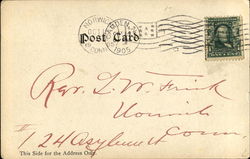 NORWICH
CONN.
1905
Post Card
Rev. L. W. Frink
Norwich
124 Asylum st Conn
This Side for the Address Only.